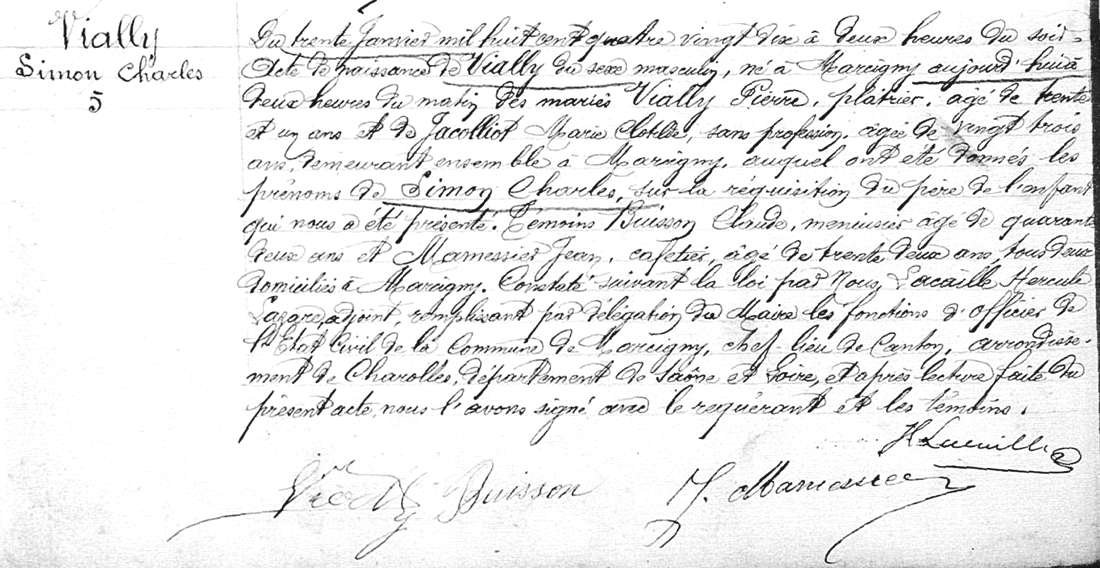 Vially
Simon Charles
5
Du trente Janvier mil huit cent quatre vingt dix à deux heures du soir.
Acte de naissance de Vially du sexe masculin, né à Marcigny aujourd'hui à
deux heures du matin des mariés Vially Pierre, plâtrier, âgé de trente
et un ans et de Jacolliot Marie Clotilde, sans profession, âgée de vingt trois
ans, demeurant ensemble à Marcigny, auquel ont été donnés les
prénoms de Simon Charles, sur la réquisition du père de l'enfant
qui nous a été présenté. Témoins Buisson Claude, menuisier âgé de quarante
deux ans et Mamessier Jean, cafetier, âgé de trente deux ans, tous deux
domiciliés à Marcigny. Constaté suivant la loi par Nous, Lacaille Hercule
Lazare, adjoint, remplissant par délégation du Maire les fonctions d'officier de
l'Etat Civil de la Commune de Marcigny, chef-lieu de Canton, arrondisse-
ment de Charolles, département de Saône et Loire, et après lecture faite du
présent acte, nous l'avons signé avec le requérant et les témoins.
Vially Buisson